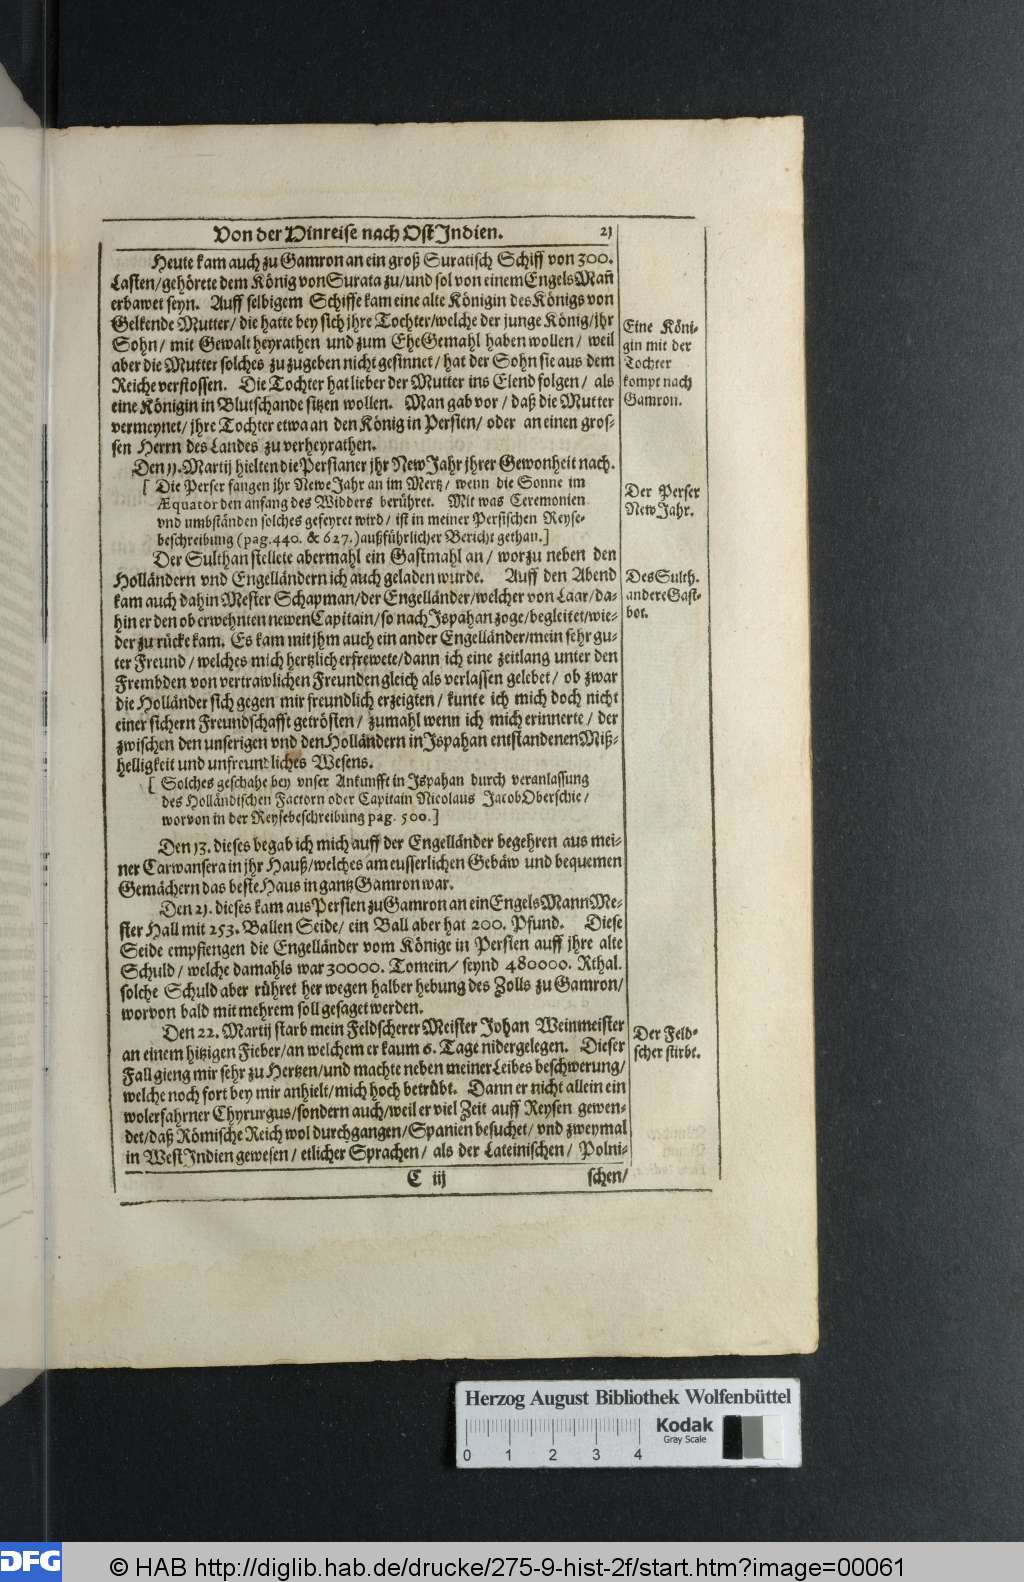 Von der Hinreise nach Ost Indien. 21
Heute kam auch zu Gamron an ein groß Suratisch Schiff von 300.
Lasten/gehörete dem König von Surata zu/und sol von einem Engels Mañ
erbawet seyn. Auff selbigem Schiffe kam eine alte Königin des Königs von
Gelkende Mutter/ die hatte bey sich jhre Tochter/welche der junge König/jhr
Sohn/ mit Gewalt heyrathen und zum EheGemahl haben wollen/ weil
aber die Mutter solches zu zugeben nicht gesinnet/ hat der Sohn sie aus dem
Reiche verstossen. Die Tochter hat lieber der Mutter ins Elend folgen/ als
eine Königin in Blutschande sitzen wollen. Man gab vor/ daß die Mutter
vermeynet/ jhre Tochter etwa an den König in Persien/ oder an einen gros-
sen Herrn des Landes zu verheyrathen.
Eine Köni-
gin mit der
Tochter
kompt nach
Gamron.
Den 11. Martij hielten die Persianer jhr New Jahr jhrer Gewonheit nach.
[ Die Perser fangen jhr Newe Jahr an im Mertz/ wenn die Sonne im
Æquator den anfang des Widders berühret. Mit was Ceremonien
vnd umbständen solches gefeyret wird/ ist in meiner Persischen Reyse-
beschreibung (pag. 440. & 627.) außführlicher Bericht gethan.]
Der Perser
New Jahr.
Der Sulthan stellete abermahl ein Gastmahl an/ worzu neben den
Holländern vnd Engelländern ich auch geladen wurde. Auff den Abend
kam auch dahin Mester Schapman/der Engelländer/welcher von Laar/da-
hin er den ob erwehnten newen Capitain/so nach Ispahan zoge/begleitet/wie-
der zu rücke kam. Es kam mit jhm auch ein ander Engelländer/mein sehr gu-
ter Freund/ welches mich hertzlich erfrewete/dann ich eine zeitlang unter den
Frembden von vertrawlichen Freunden gleich als verlassen gelebet/ ob zwar
die Holländer sich gegen mir freundlich erzeigten/ kunte ich mich doch nicht
einer sichern Freundschafft getrösten/ zumahl wenn ich mich erinnerte/ der
zwischen den unserigen vnd den Holländern in Ispahan entstandenen Miß-
helligkeit und unfreundliches Wesens.
Des Sulth.
andere Gast-
bot.
[ Solches geschahe bey vnser Ankunfft in Ispahan durch veranlassung
des Holländischen Factorn oder Capitain Nicolaus Jacob Oberschie/
worvon in der Reysebeschreibung pag. 500.]
Den 13. dieses begab ich mich auff der Engelländer begehren aus mei-
ner Carwansera in jhr Hauß/welches am eusserlichen Gebäw und bequemen
Gemächern das beste Haus in gantz Gamron war.
Den 21. dieses kam aus Persien zu Gamron an ein Engels Mann Me-
ster Hall mit 253. Ballen Seide/ ein Ball aber hat 200. Pfund. Diese
Seide empfiengen die Engelländer vom Könige in Persien auff jhre alte
Schuld/ welche damahls war 30000. Tomein/ seynd 480000. Rthal.
solche Schuld aber rühret her wegen halber hebung des Zolls zu Gamron/
worvon bald mit mehrem soll gesaget werden.
Den 22. Martij starb mein Feldscherer Meister Johan Weinmeister
an einem hitzigen Fieber/an welchem er kaum 6. Tage nidergelegen. Dieser
Fall gieng mir sehr zu Hertzen/und machte neben meiner Leibes beschwerung/
welche noch fort bey mir anhielt/mich hoch betrübt. Dann er nicht allein ein
wolerfahrner Chyrurgus/sondern auch/weil er viel Zeit auff Reysen gewen-
det/daß Römische Reich wol durchgangen/Spanien besuchet/ vnd zweymal
in West Indien gewesen/ etlicher Sprachen/ als der Lateinischen/ Polni-
Der Feld-
scher stirbt.
C iij schen/
Herzog August Bibliothek Wolfenbüttel
Kodak
Gray Scale
0 1 2 3 4
DFG
© HAB http://diglib.hab.de/drucke/275-9-hist-2f/start.htm?image=00061